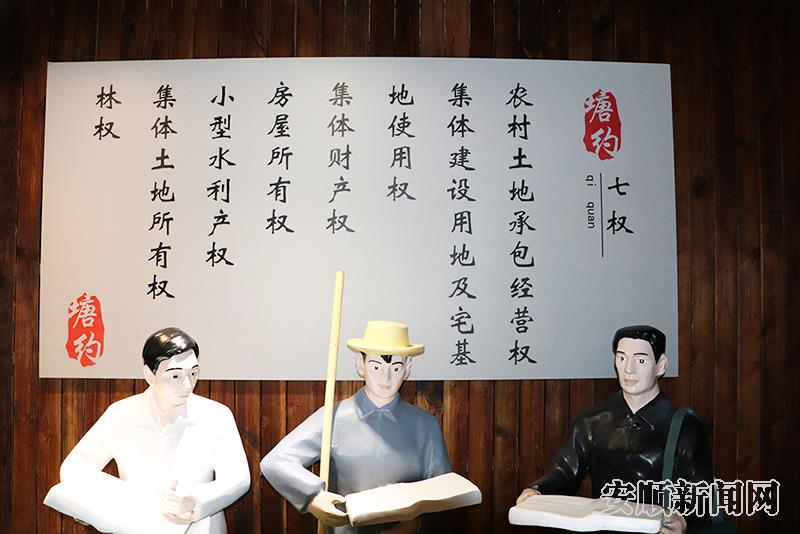 塘约
七权
qi quan
农村土地承包经营权
集体建设用地及宅基
地使用权
集体财产权
房屋所有权
小型水利产权
集体土地所有权
林权
塘约
安顺新闻网